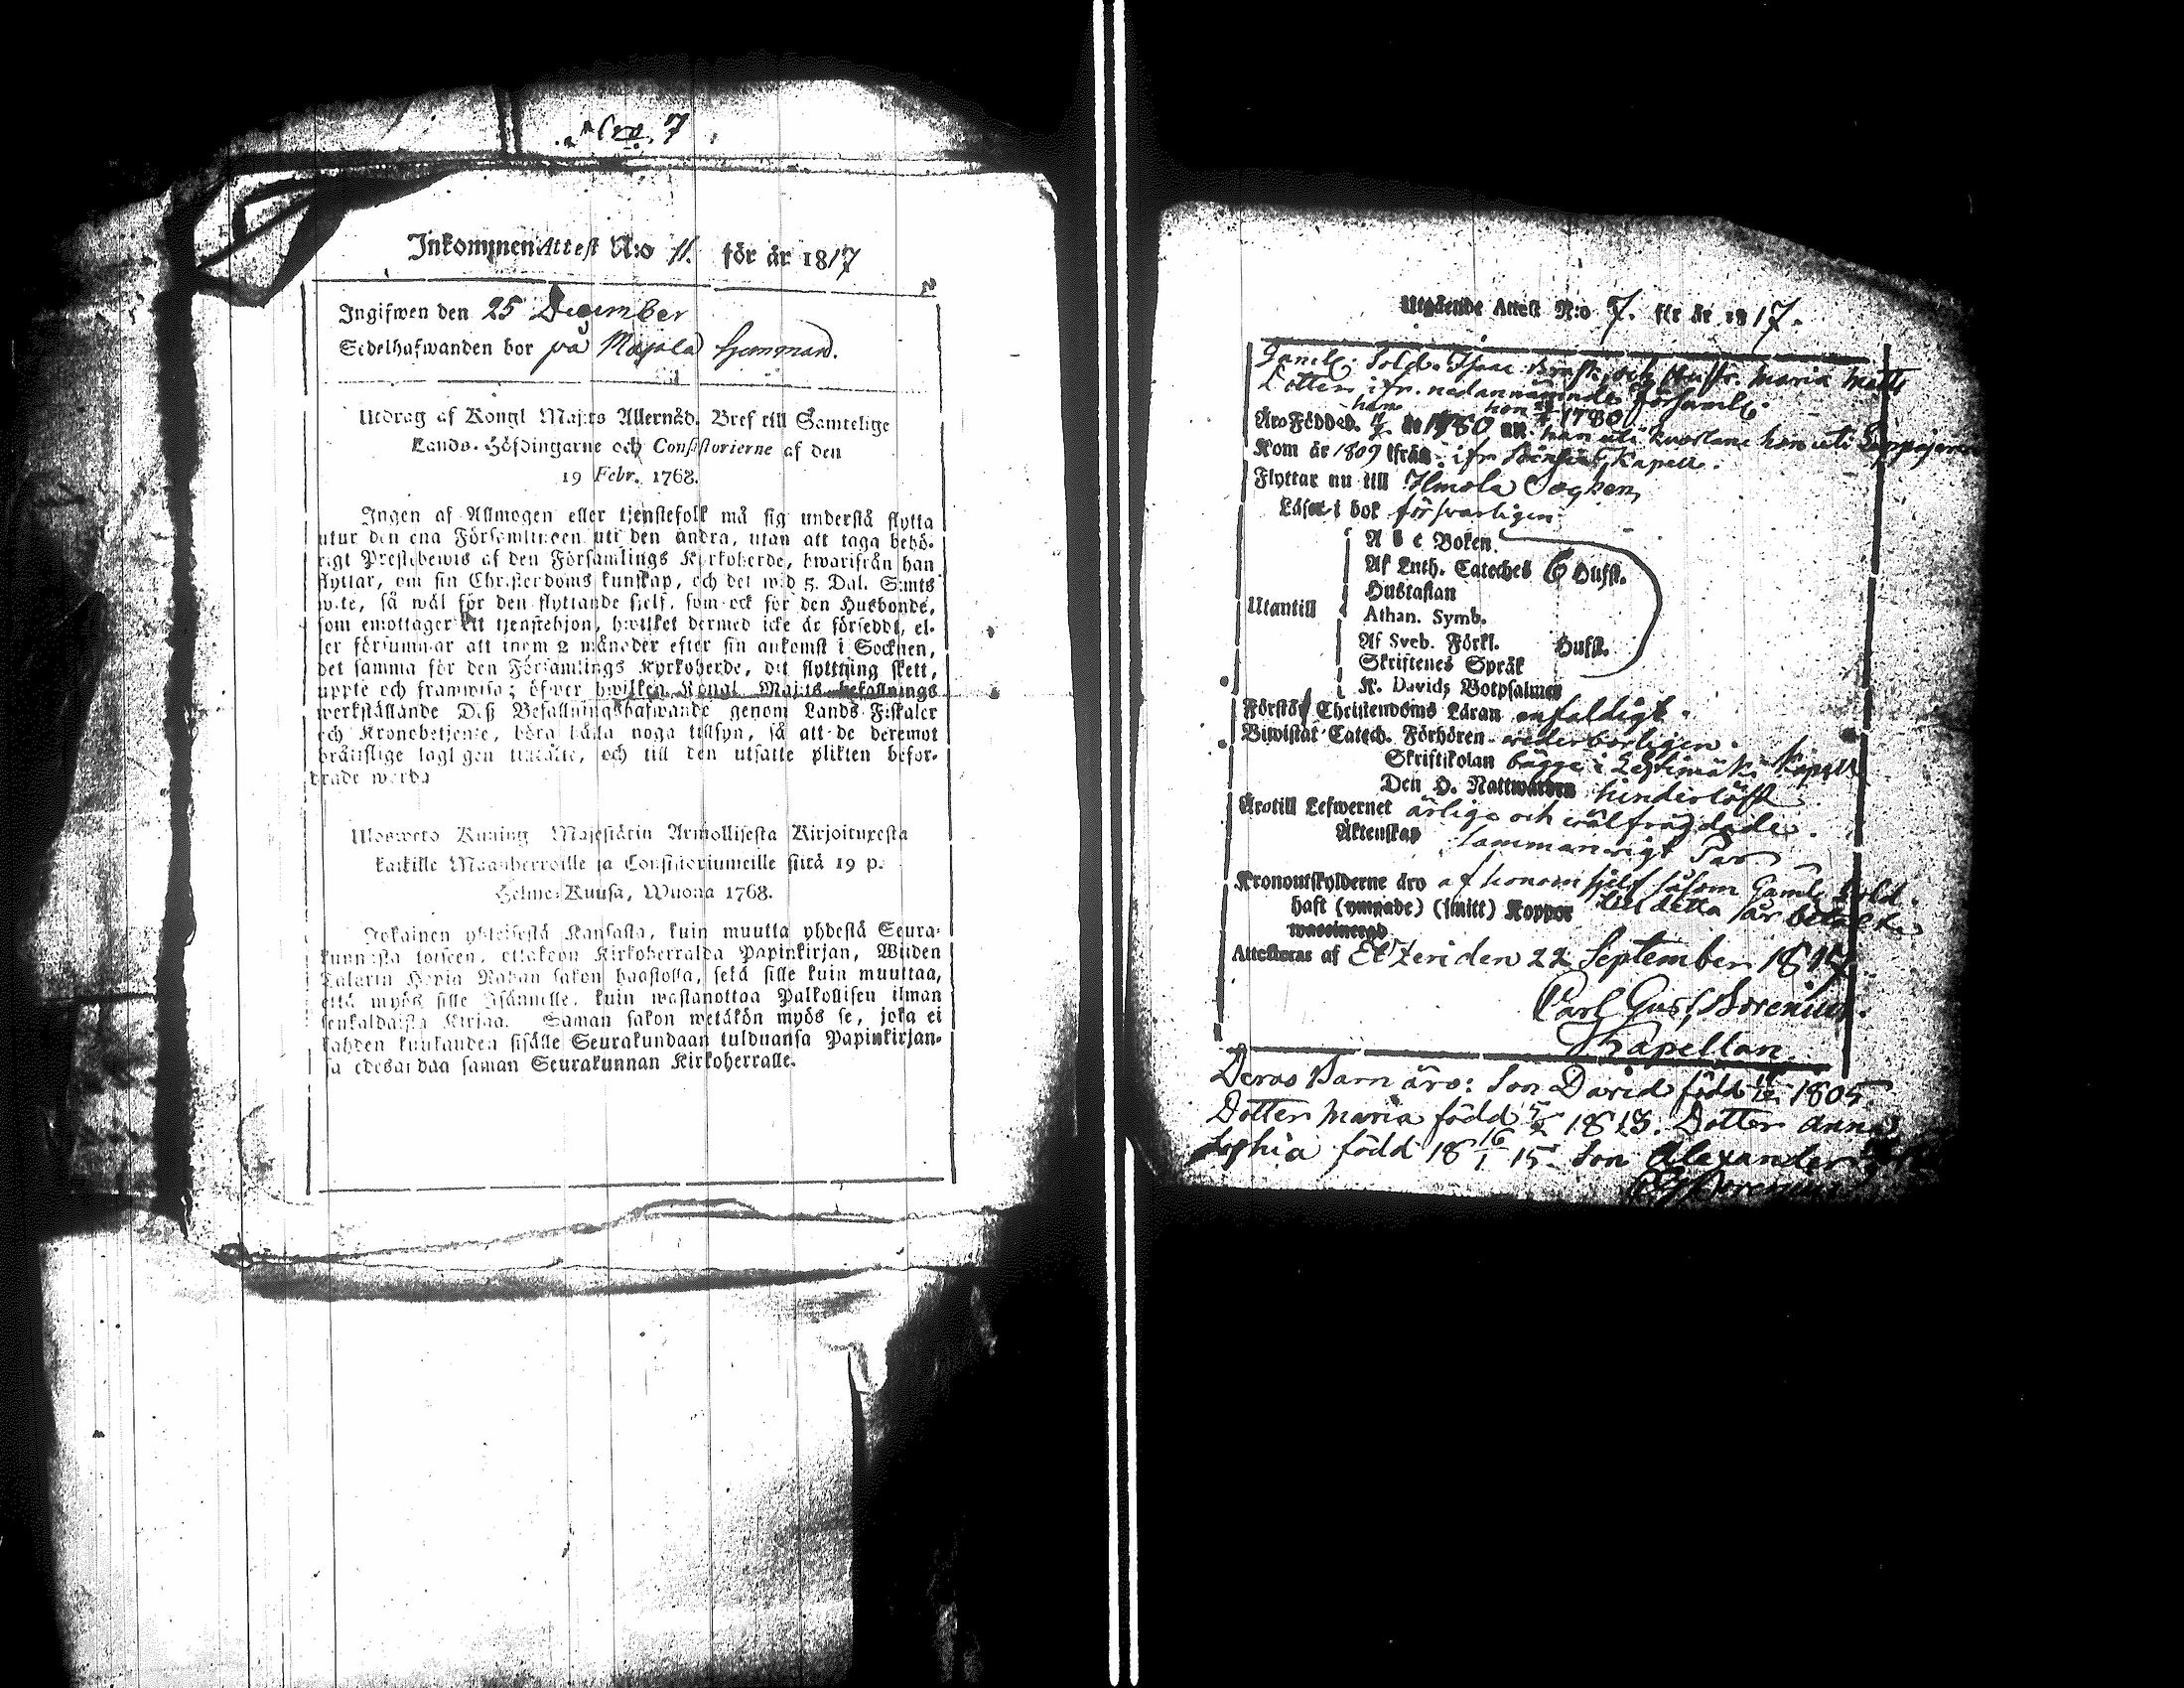 Nro 7
Inkommen Attest N:o 11. för år 1817
Ingifwen den 25 December
Sedelhafwanden bor på Majala hemman.
Utdrag af Kongl Maj:ts Allernåd. Bref till Samtelige
Lands-Höfdingarne och Consistorierne af den
19 Febr. 1768.
Ingen af Allmogen eller tjenstefolk må sig understå flytta
utur den ena Församlingen uti den andra, utan att taga behö-
rigt Prestebewis af den Församlings Kyrkoherde, hwarifrån han
flyttar, om sin Christendoms kunskap, och det wid 5. Dal. S:mts
wite, så wäl för den flyttande sjelf, som ock för den Husbonde,
som emottager ett tjenstehjon, hwilket dermed icke är försedt, el-
ler försummar att inom 2 månader efter sin ankomst i Socknen,
det samma för den Församlings Kyrkoherde, dit flyttning skett,
uppte och framwisa; öfwer hwilken Kongl Maj:ts befallnings
werkställande Dess Befallningshafwande genom Lands Fiskaler
och Kronebetjente, böra hålla noga tillsyn, så att de deremot
bråttslige lagligen tilltalte, och till den utsatte plikten befor-
drade warda
Ulosweto Kuning Majestätin Armollisesta Kirjoituxesta
kaikille Maanherroille ja Consistoriumeille siitä 19 p.
Helme-Kuusa, Wuona 1768.
Jokainen yhteisestä Kansasta, kuin muutta yhdestä Seura-
kunnasta toiseen, ottakoon Kirkoherralda Papinkirjan, Wiiden
Talarin Hopia Rahan sakon haastolla, sekä sille kuin muuttaa,
että myös sille Isännelle, kuin wastanottaa Palkollisen ilman
senkaldaista Kirjaa. Saman sakon wetäkön myös se, joka ei
kahden kuukauden sisälle Seurakundaan tulduansa Papinkirjan-
sa edesandaa saman Seurakunnan Kirkoherralle.
Utgående Attest N:o 7. för år 1817.
Gamle Sold. Isaac och Hustr. Maria Matts
Dotter ifr. nedannämnde församl.
Äro Födde d. år 1780 han uti hon uti
Kom år 1809 ifrån ifr Kapell.
Flyttar nu till Ilmola Sochen
Läser i bok försvarligen
A b c Boken
Af Luth. Cateches 6 Hufst.
Hustaflan
Utantill
Athan. Symb.
Af Sveb. Förkl. Hufst.
Skriftenes Språk
K. Davids Botpsalmer
Förstår Christendoms Läran enfaldigt.
Biwistat Catech. Förhören wederbörligen.
Skriftskolan bägge i Kapell
Den H. Nattwarden hinderlöst
Äro till Lefwernet ärlige och wälfrägdade.
Äktenskap sammanwigt Par
Kronoutskylderne äro af honom sjelf såsom Gamle Sold.
till detta år betalte
haft (ympade) (smitt) Koppor
waccinerad
Attesteras af Etzeri den 22 September 1817.
Carl Gust. Borenius.
Kapellan
Deras Barn äro: Son David född 1805.
Dotter Maria född 1813. Dotter Anna
Sophia född 18 16/1 15. Son Alexander